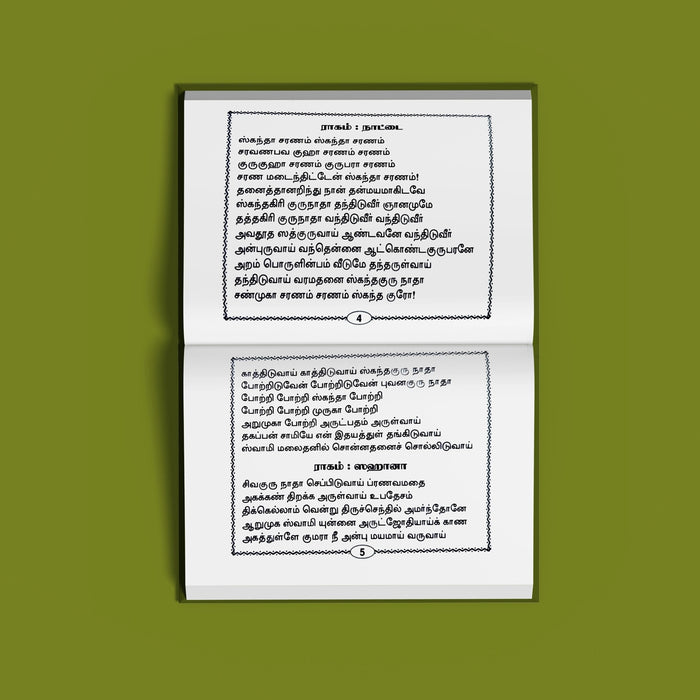 ராகம் : நாட்டை
ஸ்கந்தா சரணம் ஸ்கந்தா சரணம்
சரவணபவ குஹா சரணம் சரணம்
குருகுஹா சரணம் குருபரா சரணம்
சரண மடைந்திட்டேன் ஸ்கந்தா சரணம்!
தனைத்தானறிந்து நான் தன்மயமாகிடவே
ஸ்கந்தகிரி குருநாதா தந்திடுவீர் ஞானமுமே
தத்தகிரி குருநாதா வந்திடுவீர் வந்திடுவீர்
அவதூத ஸத்குருவாய் ஆண்டவனே வந்திடுவீர்
அன்புருவாய் வந்தென்னை ஆட்கொண்டகுருபரனே
அறம் பொருளின்பம் வீடுமே தந்தருள்வாய்
தந்திடுவாய் வரமதனை ஸ்கந்தகுரு நாதா
சண்முகா சரணம் சரணம் ஸ்கந்த குரோ!
4
காத்திடுவாய் காத்திடுவாய் ஸ்கந்தகுரு நாதா
போற்றிடுவேன் போற்றிடுவேன் புவனகுரு நாதா
போற்றி போற்றி ஸ்கந்தா போற்றி
போற்றி போற்றி முருகா போற்றி
அறுமுகா போற்றி அருட்பதம் அருள்வாய்
தகப்பன் சாமியே என் இதயத்துள் தங்கிடுவாய்
ஸ்வாமி மலைதனில் சொன்னதனைச் சொல்லிடுவாய்
ராகம் : ஸஹானா
சிவகுரு நாதா செப்பிடுவாய் ப்ரணவமதை
அகக்கண் திறக்க அருள்வாய் உபதேசம்
திக்கெல்லாம் வென்று திருச்செந்தில் அமர்ந்தோனே
ஆறுமுக ஸ்வாமி யுன்னை அருட்ஜோதியாய்க் காண
அகத்துள்ளே குமரா நீ அன்பு மயமாய் வருவாய்
5